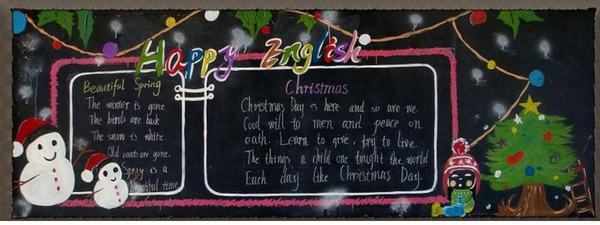 Happy English
Beautiful Spring
The winter is gone
The birds are back
The snow is white.
Old gone.
is a
time
Christmas
Christmas Day is here and so are we.
Cool will to men and peace on
eath. Learn to give, try to live.
The things a child one taught the world
Each day like Christmas Day.